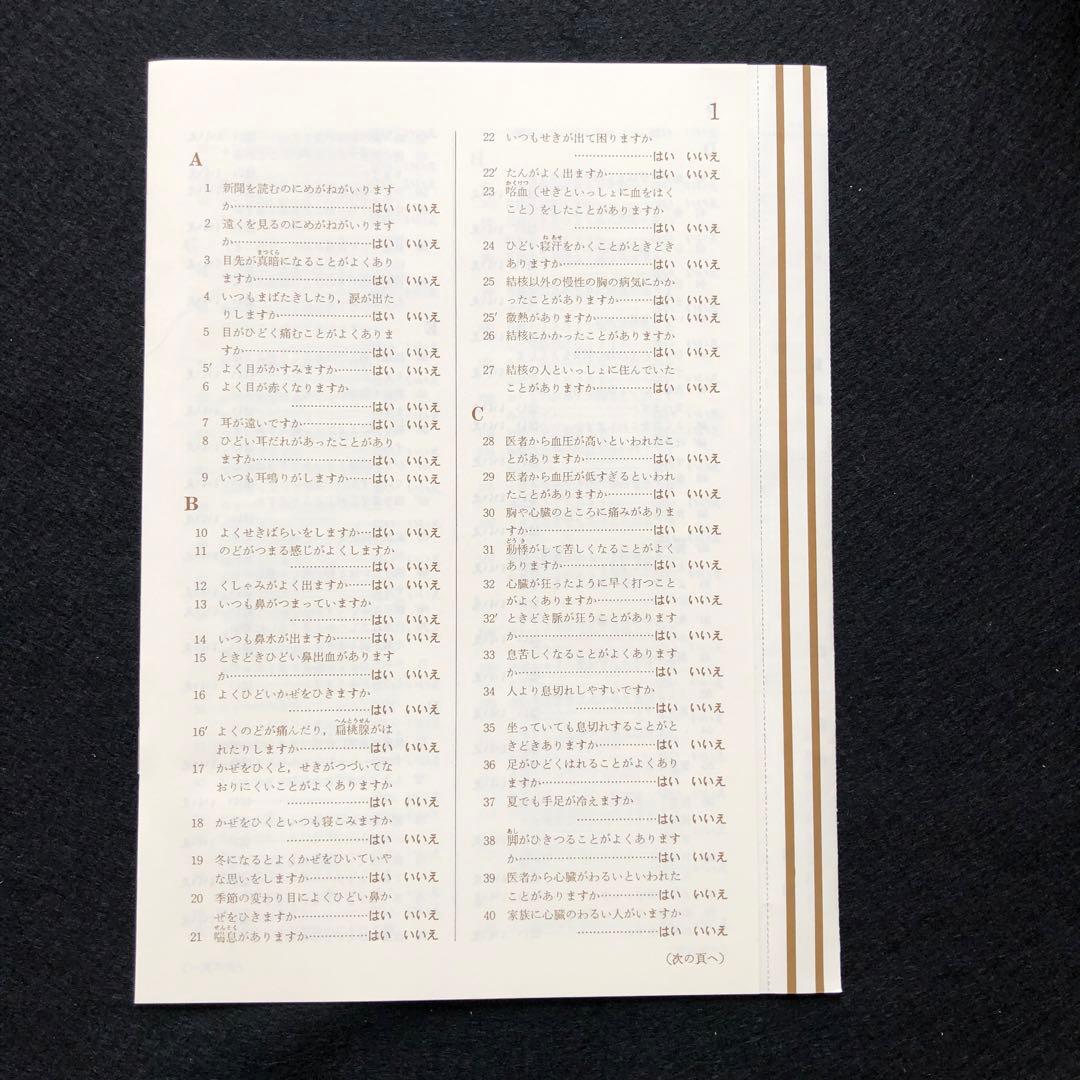 1
A
1 新聞を読むのにめがねがいります
か……………………はい いいえ
2 遠くを見るのにめがねがいります
か……………………はい いいえ
まっくら
3 目先が真暗になることがよくあり
ますか………………はい いいえ
4 いつもまばたきしたり，涙が出た
りしますか…………はい いいえ
5 目がひどく痛むことがよくありま
すか…………………はい いいえ
5′ よく目がかすみますか………はい いいえ
6 よく目が赤くなりますか
……………はい いいえ
7 耳が遠いですか………………はい いいえ
8 ひどい耳だれがあったことがあり
ますか………………はい いいえ
9 いつも耳鳴りがしますか……はい いいえ
B
10 よくせきばらいをしますか…はい いいえ
11 のどがつまる感じがよくしますか
……………はい いいえ
12 くしゃみがよく出ますか……はい いいえ
13 いつも鼻がつまっていますか
……………はい いいえ
14 いつも鼻水が出ますか………はい いいえ
15 ときどきひどい鼻出血があります
か……………………はい いいえ
16 よくひどいかぜをひきますか
……………はい いいえ
へんとうせん
16′ よくのどが痛んだり，扁桃腺がは
れたりしますか………はい いいえ
17 かぜをひくと，せきがつづいてな
おりにくいことがよくありますか
……………はい いいえ
18 かぜをひくといつも寝こみますか
……………はい いいえ
19 冬になるとよくかぜをひいていや
な思いをしますか………はい いいえ
20 季節の変わり目によくひどい鼻か
ぜをひきますか…………はい いいえ
ぜんそく
21 喘息がありますか………はい いいえ
22 いつもせきが出て困りますか
……………はい いいえ
22′ たんがよく出ますか…………はい いいえ
かくけつ
23 喀血（せきといっしょに血をはく
こと）をしたことがありますか
……………はい いいえ
ね あせ
24 ひどい寝汗をかくことがときどき
ありますか……………はい いいえ
25 結核以外の慢性の胸の病気にかか
ったことがありますか………はい いいえ
25′微熱がありますか……………はい いいえ
26 結核にかかったことがありますか
……………はい いいえ
27 結核の人といっしょに住んでいた
ことがありますか………はい いいえ
C
28 医者から血圧が高いといわれたこ
とがありますか…………はい いいえ
29 医者から血圧が低すぎるといわれ
たことがありますか………はい いいえ
30 胸や心臓のところに痛みがありま
すか…………………はい いいえ
どう き
31 動悸がして苦しくなることがよく
ありますか……………はい いいえ
32 心臓が狂ったように早く打つこと
がよくありますか………はい いいえ
32′ ときどき脈が狂うことがあります
か……………………はい いいえ
33 息苦しくなることがよくあります
か……………………はい いいえ
34 人より息切れしやすいですか
……………はい いいえ
35 坐っていても息切れすることがと
きどきありますか………はい いいえ
36 足がひどくはれることがよくあり
ますか………………はい いいえ
37 夏でも手足が冷えますか
……………はい いいえ
あし
38 脚がひきつることがよくあります
か……………………はい いいえ
39 医者から心臓がわるいといわれた
ことがありますか………はい いいえ
40 家族に心臓のわるい人がいますか
……………はい いいえ
（次の頁へ）